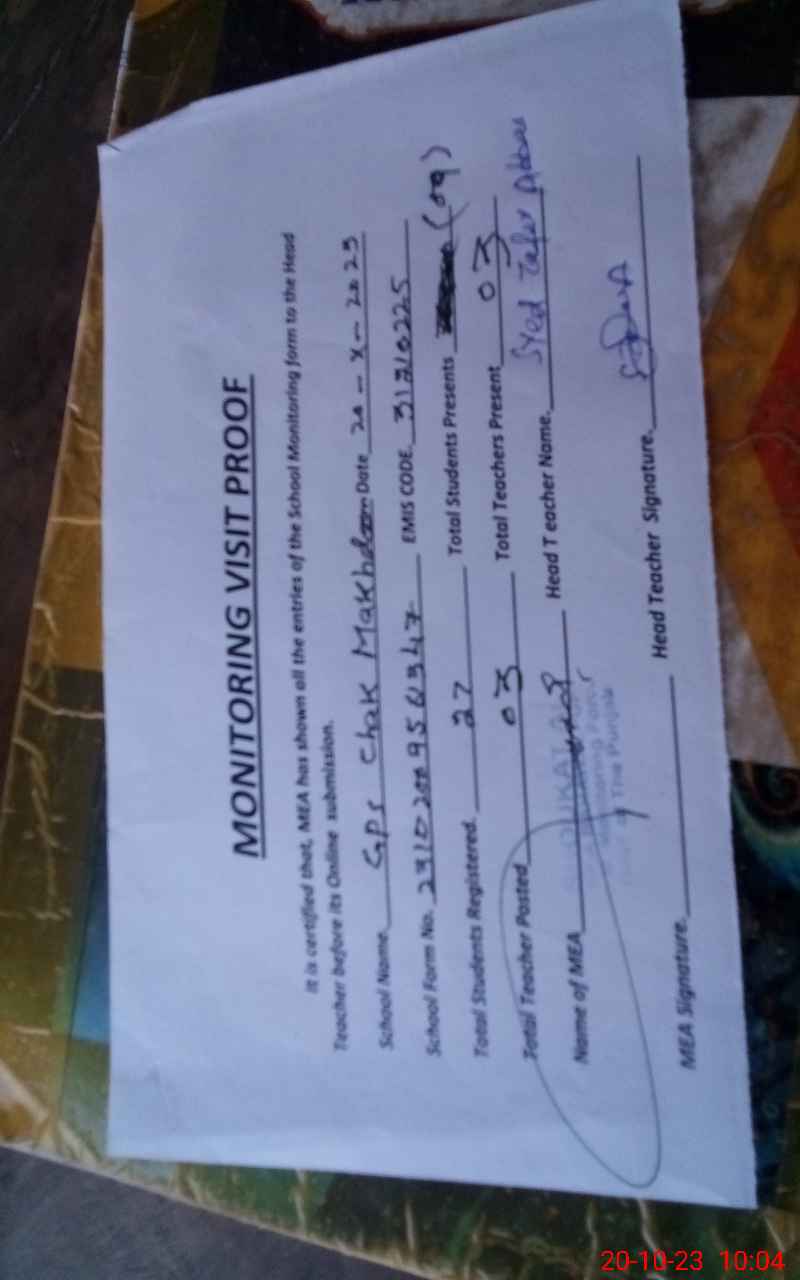 MONITORING VISIT PROOF
It is certified that, MEA has shown all the entries of the School Monitoring form to the Head
Teacher before its Online submission.
School Name. GPS Chak Makhdoom Date 20-X-2023
School Form No. EMIS CODE. 31210225
Total Students Registered. 27 Total Students Presents (09)
Total Teacher Posted 03 Total Teachers Present 03
Name of MEA Head Teacher Name. Syed Zafar Abbas
The Punjab
MEA Signature. Head Teacher Signature.
20-10-23 10:04